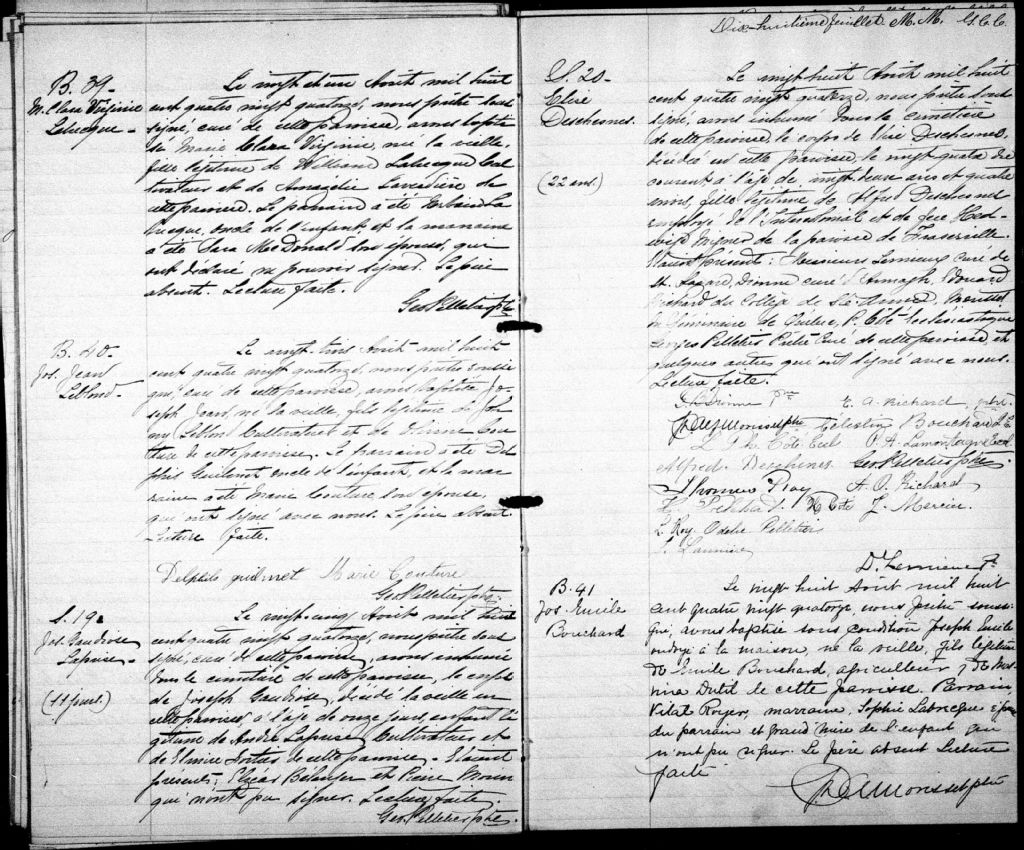 B. 39-
M. Clara Virginie
Labrecque -
Le vingt et une Août mil huit
cent quatre vingt quatorze, nous prêtre sous
signé, curé de cette paroisse, avons baptisé
Marie Clara Virginie, née la veille,
fille légitime de Labrecque Cul
tivateur et de Laverdière de
cette paroisse. Le parrain a été La
brecque, oncle de l'enfant et la marraine
a été Sara MacDonald son épouse, qui
ont déclaré ne pouvoir signer. Le père
absent. Lecture faite.
Geo Pelletier ptre
B. 40-
Jos. Jean
Leblond -
Le vingt-trois Août mil huit
cent quatre vingt quatorze, nous prêtre soussi
gné, curé de cette paroisse, avons baptisé Jo-
seph Jean, né la veille, fils légitime de
Leblond Cultivateur et de Cou
ture de cette paroisse. Le parrain a été Del
phis Guilmet oncle de l'enfant, et la mar
raine a été Marie Couture son épouse,
qui ont signé avec nous. Le père absent.
Lecture faite.
Delphis guilmet Marie Couture
Geo Pelletier ptre.
S. 19.
Jos. Gaudiose
Laprise -
(11 jours.)
Le vingt-cinq Août mil huit
cent quatre vingt quatorze, nous prêtre sous
signé, curé de cette paroisse, avons inhumé
dans le cimetière de cette paroisse, le corps
de Joseph Gaudiose, décédé la veille en
cette paroisse, à l'âge de onze jours, enfant lé
gitime de André Laprise Cultivateur et
de Elmire de cette paroisse - Etaient
présents; Elzéar Bélanger et Pierre Morin
qui n'ont pu signer. Lecture faite.
Geo. Pelletier ptre.
Dix-huitième feuillet M. M. G.C.C.
S. 20-
Deschesnes.
(22 ans.)
Le vingt huit Août mil huit
cent quatre vingt quatorze, nous prêtre sous
signé, avons inhumé dans le cimetière
de cette paroisse, le corps de Deschesnes,
décédée en cette paroisse, le vingt quatre du
courant, à l'âge de vingt deux ans et quatre
mois, fille légitime de Alfred Deschesnes
employé de l'Intercolonial et de feue Hed-
wige Mignier de la paroisse de Fraserville.
Etaient présents: Messieurs Lemieux curé de
St. Lazare, Dionne curé d'Armagh, Edouard
Richard du Collège de Ste Anne,
du Séminaire de Québec, P. Côté Ecclésiastique
Georges Pelletier Prêtre Curé de cette paroisse, et
quelques autres qui ont signé avec nous.
Lecture faite.
Dionne Ptre E. A. Richard, ptre.
Célestin Bouchard
L. Ph. Côté Eccl P. A. Lamontagne Eccl.
Alfred Deschenes Geo Pelletier ptre.
Thomas Roy A. O. Richard
Côté J. Mercier.
L. Roy. Odelie Pelletier
D. Lemieux P.
B. 41
Jos. Emile
Bouchard
Le vingt huit Août mil huit
cent quatre vingt quatorze nous prêtre soussi-
gné, avons baptisé sous condition Joseph Emile
ondoyé à la maison, né la veille, fils légitime
de Emile Bouchard, agriculteur, & de
Dutil de cette paroisse. Parrain,
Vital Royer, marraine, Sophie Labrecque épouse
du parrain et grand'mère de l'enfant qui
n'ont pu signer. Le père absent Lecture
faite